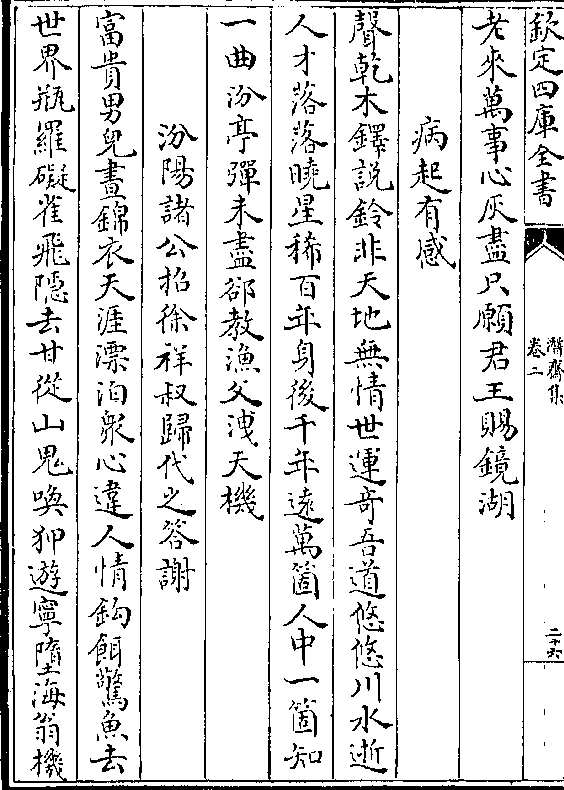 欽定四庫全書
潛齋集
卷二
二十六
老來萬事心灰盡只願君王賜鏡湖
病起有感
聲乾木鐸說鈴非天地無情世運奇吾道悠悠川水逝
人才落落曉星稀百年身後千年遠萬箇人中一箇知
一曲汾亭彈未盡郤教漁父洩天機
汾陽諸公招徐祥叔歸代之答謝
富貴男兒晝錦衣天涯漂泊衆心違人情鈎餌驚魚去
世界瓶羅礙雀飛隠去甘從山鬼喚狎遊寧墮海翁機